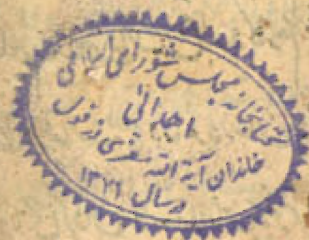 کتابخانه مجلس شورای اسلامی
اهدائی
خاندان آیة الله سفری دزفولی
در سال ۱۳۷۱